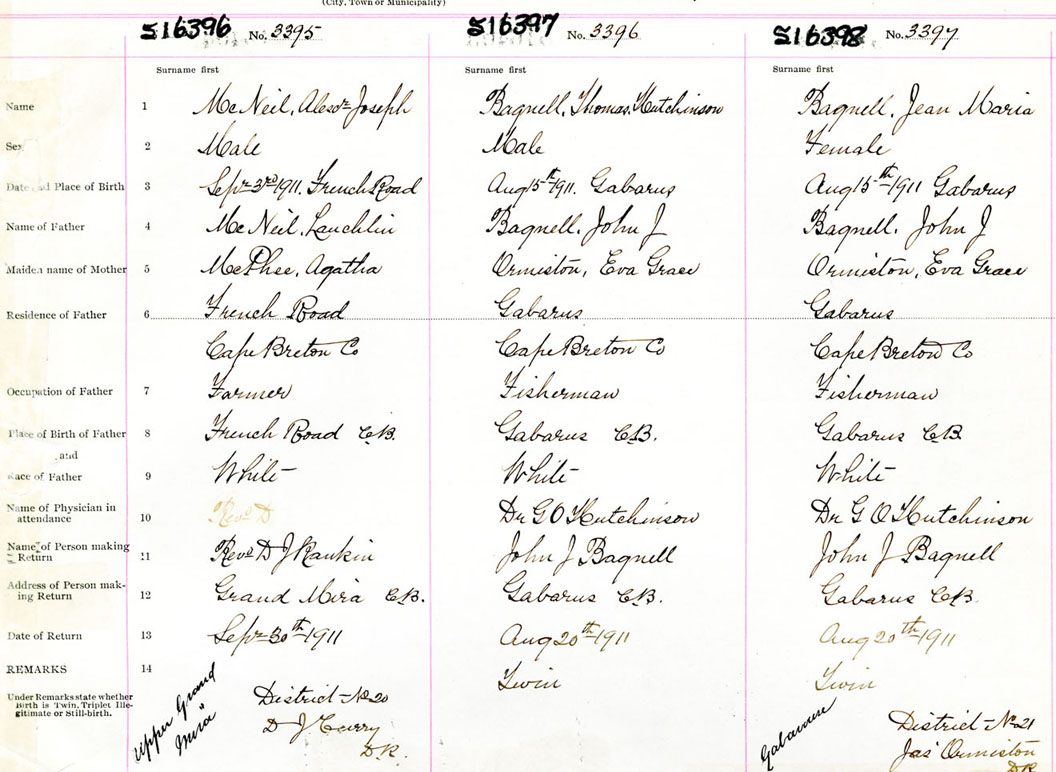 (City, Town or Municipality)
S16396 No. 3395 S16397 No. 3396 S16398 No. 3397
Surname first Surname first Surname first
Name 1 McNeil, Alexdr Joseph Bagnell, Thomas Hutchinson Bagnell, Jean Maria
Sex 2 Male Male Female
Date and Place of Birth 3 Sepr 3rd 1911. French Road Aug 15th 1911. Gabarus Aug 15th 1911 Gabarus
Name of Father 4 McNeil, Lauchlin Bagnell, John J Bagnell, John J
Maiden name of Mother 5 McPhee, Agatha Ormiston, Eva Grace Ormiston, Eva Grace
Residence of Father 6 French Road Gabarus Gabarus
Cape Breton Co Cape Breton Co Cape Breton Co
Occupation of Father 7 Farmer Fisherman Fisherman
Place of Birth of Father 8 French Road C.B. Gabarus C.B. Gabarus C.B
and
Race of Father 9 White White White
Name of Physician in
attendance 10 Revd D Dr G O Hutchinson Dr G O Hutchinson
Name of Person making
Return 11 Revd D J Rankin John J Bagnell John J Bagnell
Address of Person mak-
ing Return 12 Grand Mira C.B. Gabarus C.B. Gabarus C.B.
Date of Return 13 Sepr 30th 1911 Aug 20th 1911 Aug 20th 1911
REMARKS 14 Twin Twin
Under Remarks state whether
Birth is Twin, Triplet Ille-
gitimate or Still-birth.
Upper Grand
Mira
District No 20
D J Curry
D.R.
Gabarus
District No 21
Jas Ormiston
DR